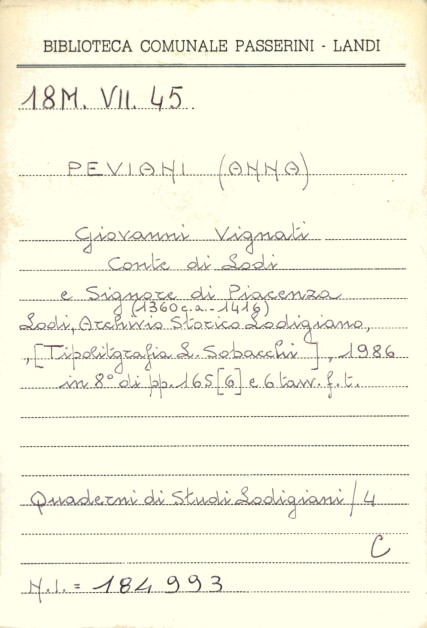 BIBLIOTECA COMUNALE PASSERINI - LANDI
18M. VII. 45.
PEVIANI (ANNA)
Giovanni Vignati
Conte di Lodi
e Signore di Piacenza
(1360 c.a. - 1416)
Lodi, Archivio Storico Lodigiano,
, [Tipolitgrafia L. Sobacchi], 1986
in 8° di pp. 165 [6] e 6 tavv. f. t.
Quaderni di Studi Lodigiani / 4
C
N.I. = 184993